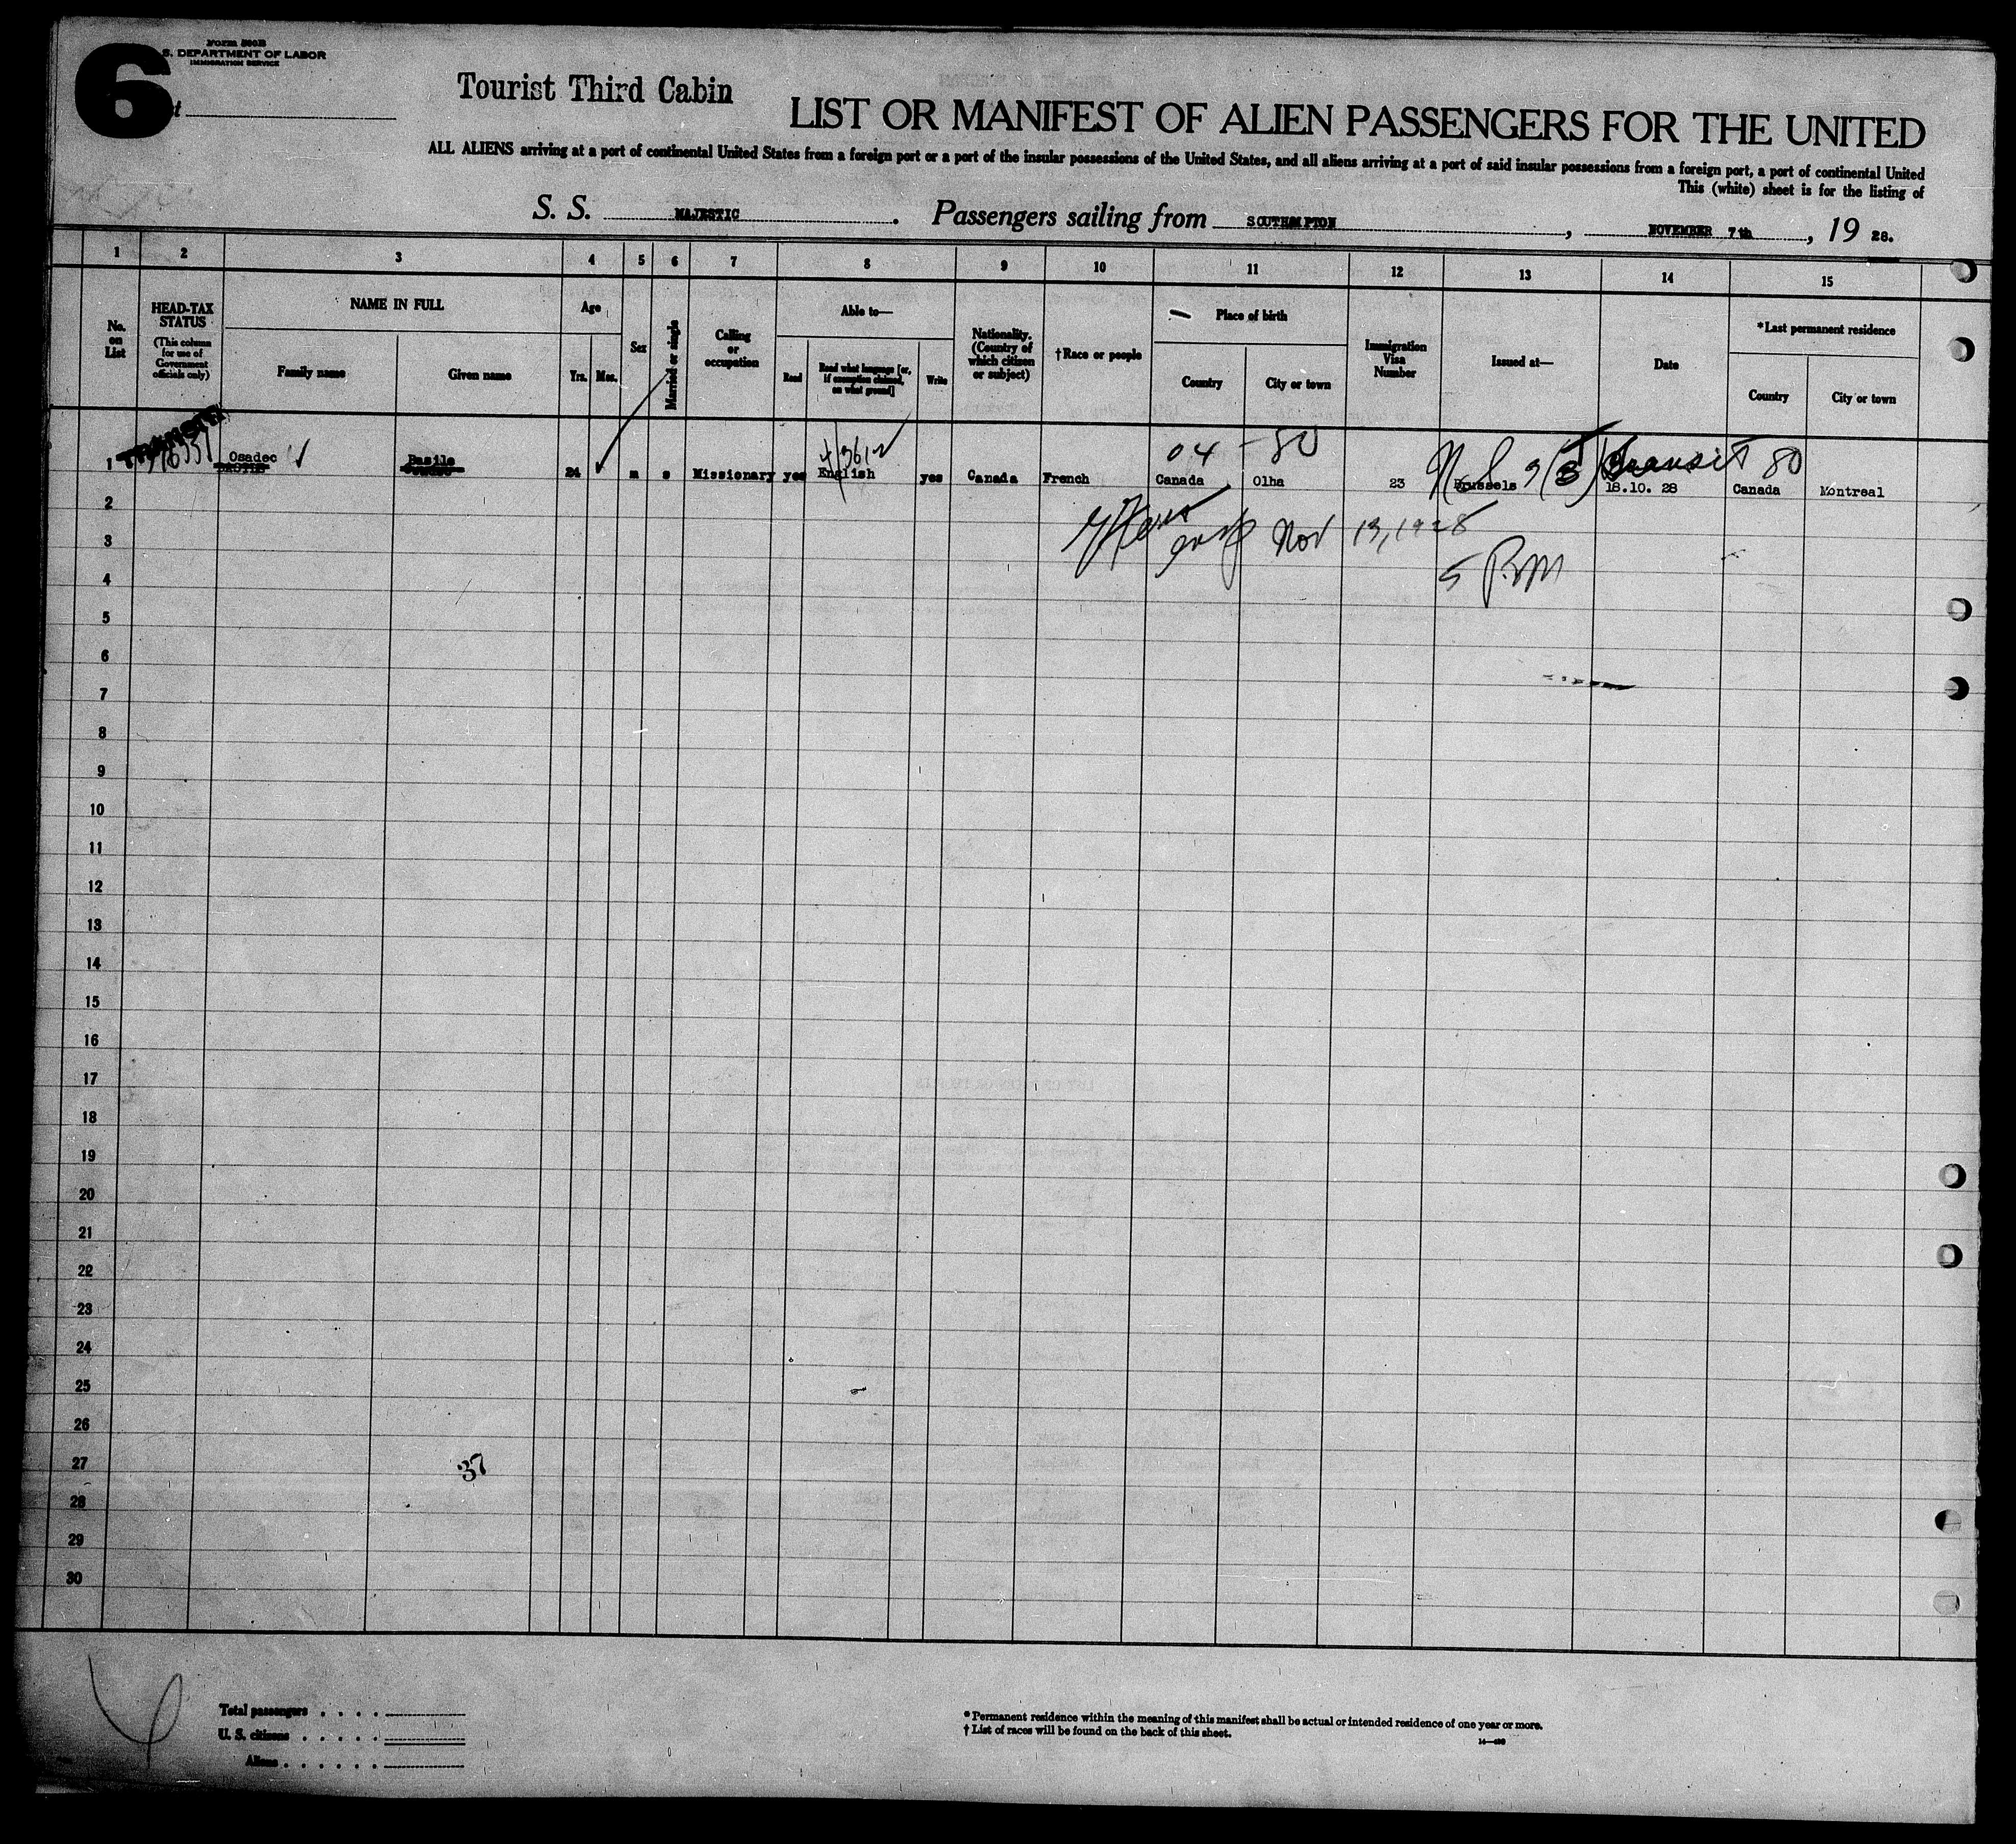 6
Form 500B
S. DEPARTMENT OF LABOR
IMMIGRATION SERVICE
Tourist Third Cabin
LIST OR MANIFEST OF ALIEN PASSENGERS FOR THE UNITED
ALL ALIENS arriving at a port of continental United States from a foreign port or a port of the insular possessions of the United States, and all aliens arriving at a port of said insular possessions from a foreign port, a port of continental United
This (white) sheet is for the listing of
S. S. MAJESTIC. Passengers sailing from SOUTHAMPTON, NOVEMBER 7th, 19 28.
1 2 3 4 5 6 7 8 9 10 11 12 13 14 15
No. on List
HEAD-TAX STATUS
(This column for use of Government officials only)
NAME IN FULL
Family name
Given name
Age
Yrs. Mos.
Sex
Married or single
Calling or occupation
Able to—
Read
Read what language [or, if exemption claimed, on what ground]
Write
Nationality. (Country of which citizen or subject)
†Race or people
Place of birth
Country
City or town
Immigration Visa Number
Issued at—
Date
*Last permanent residence
Country
City or town
TRANSIT
04 - 80
Transit 80
1 Osadec Basile 24 m s Missionary yes English yes Canada French Canada Olha 23 Brussels 18.10. 28 Canada Montreal
Nov 13, 1928
5 P.M
2
3
4
5
6
7
8
9
10
11
12
13
14
15
16
17
18
19
20
21
22
23
24
25
26
27
37
28
29
30
Total passengers
U. S. citizens
Aliens
* Permanent residence within the meaning of this manifest shall be actual or intended residence of one year or more.
† List of races will be found on the back of this sheet.